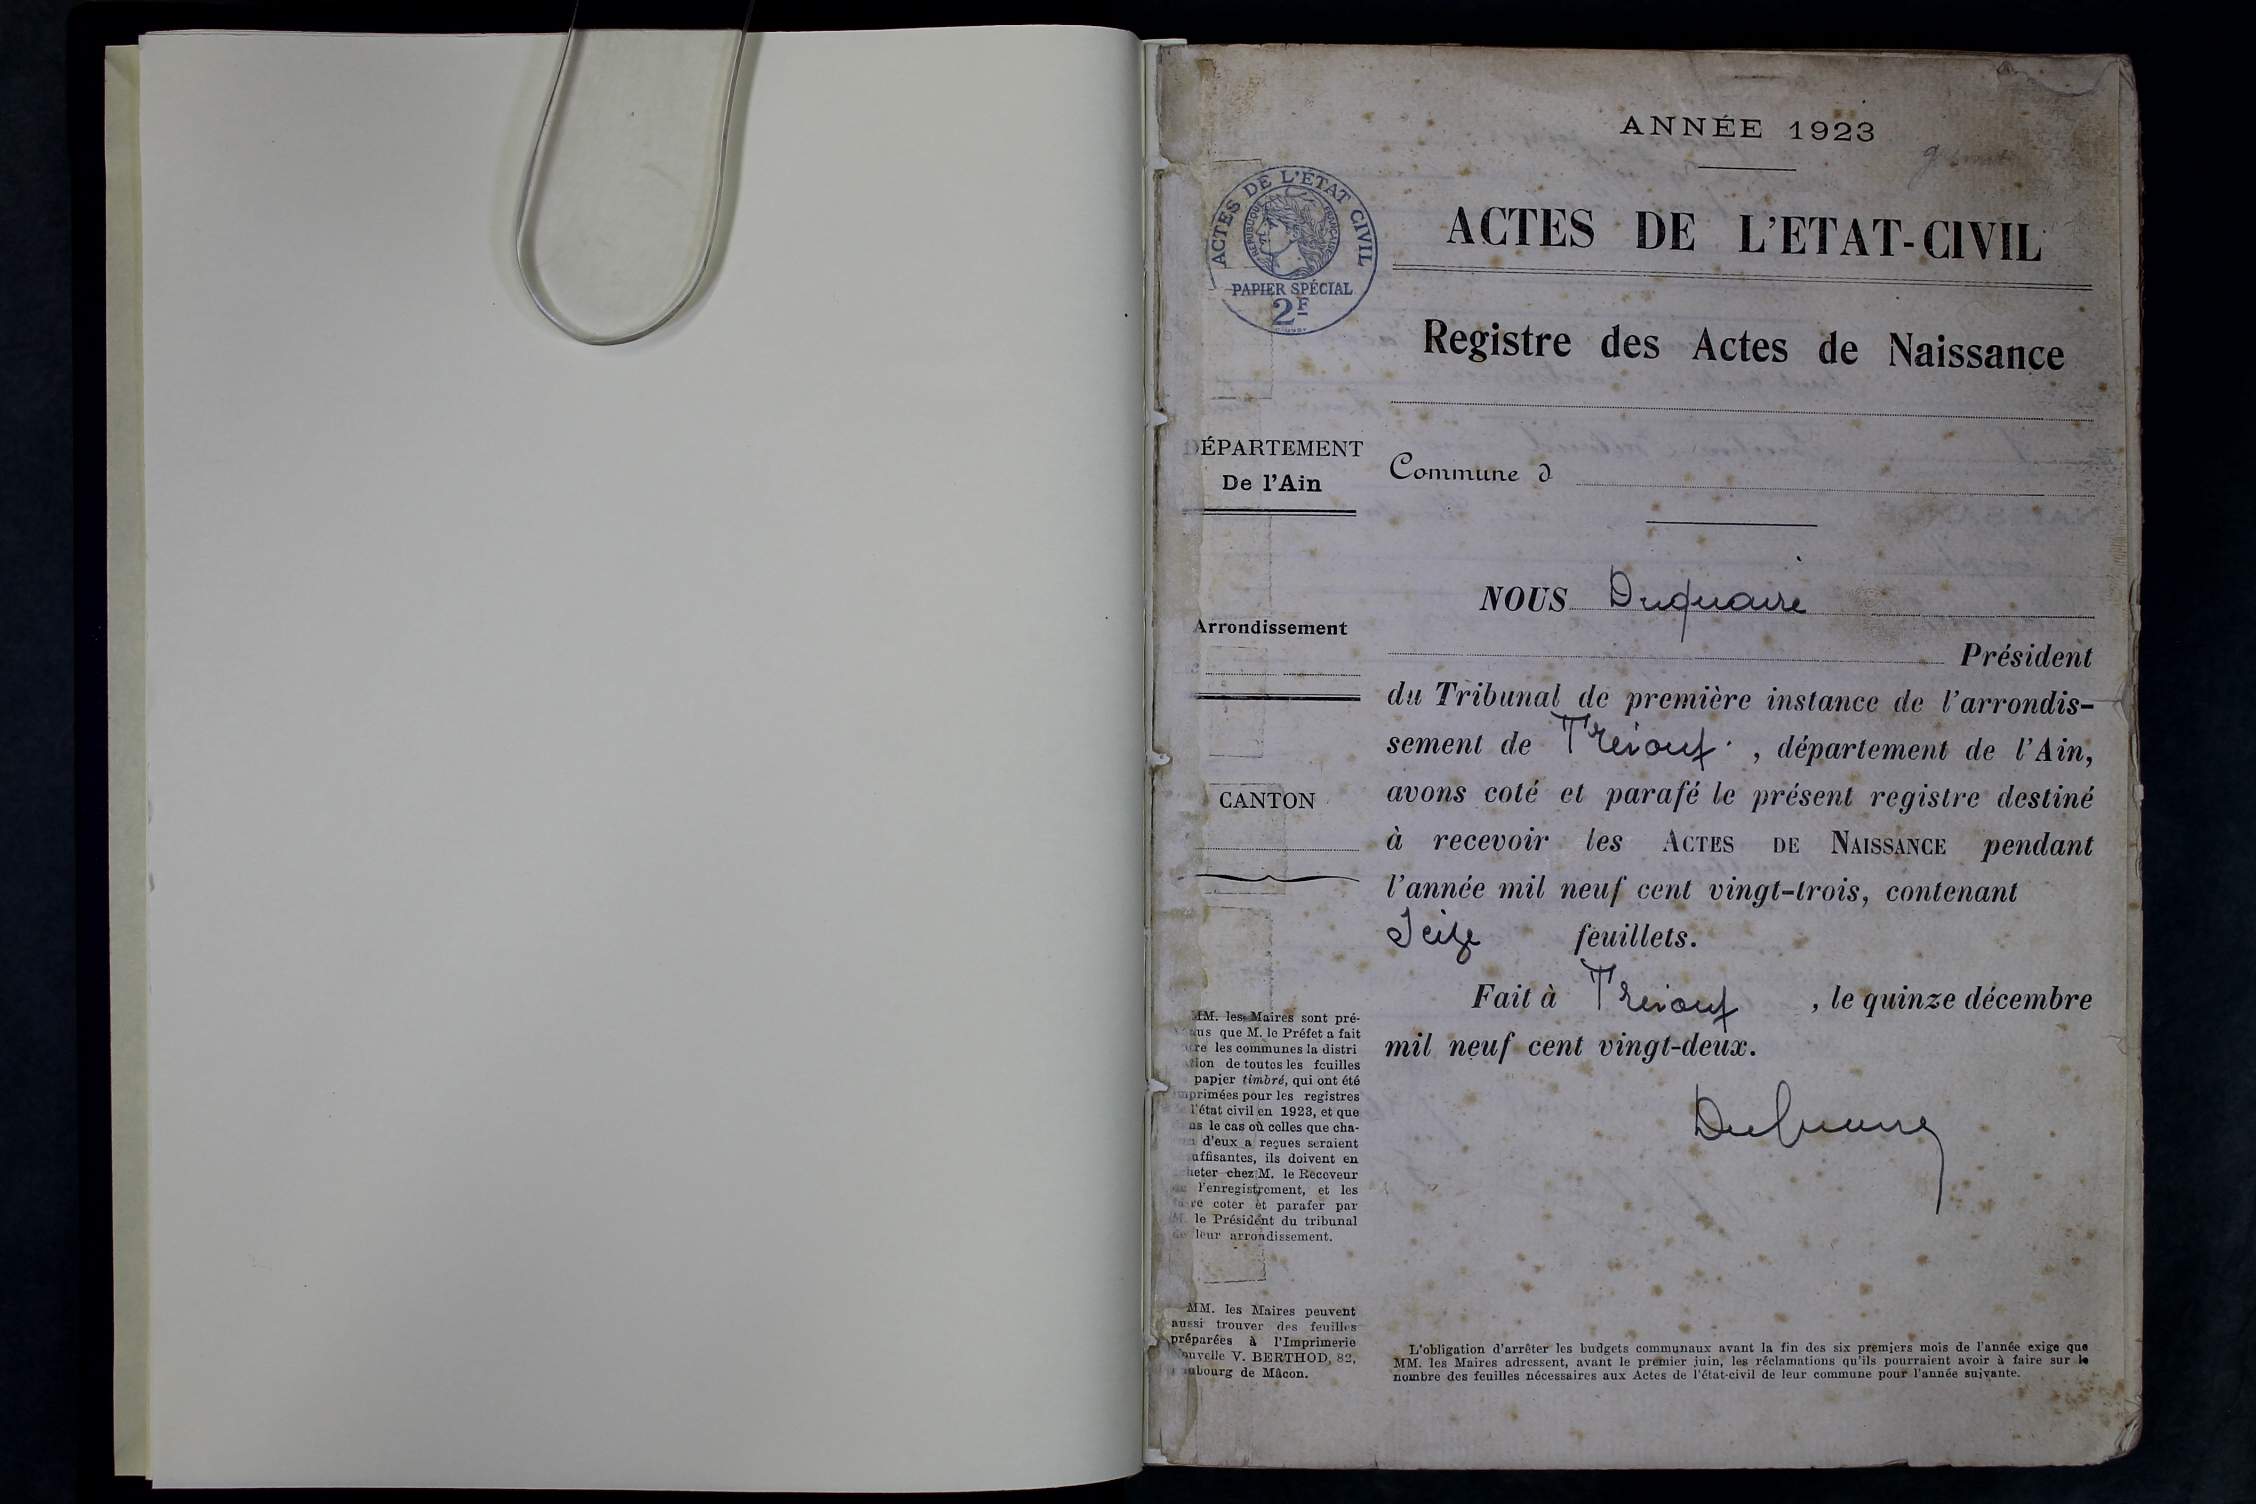 ANNÉE 1923
ACTES DE L'ÉTAT CIVIL
RÉPUBLIQUE FRANÇAISE
PAPIER SPÉCIAL
2F
ACTES DE L'ETAT-CIVIL
Registre des Actes de Naissance
DÉPARTEMENT
De l'Ain
Commune d
Arrondissement
CANTON
NOUS Duquaire
Président
du Tribunal de première instance de l'arrondis-
sement de Trévoux , département de l'Ain,
avons coté et parafé le présent registre destiné
à recevoir les ACTES DE NAISSANCE pendant
l'année mil neuf cent vingt-trois, contenant
Seize feuillets.
Fait à Trévoux , le quinze décembre
mil neuf cent vingt-deux.
MM. les Maires sont pré-
us que M. le Préfet a fait
re les communes la distri
tion de toutes les feuilles
papier timbré, qui ont été
mprimées pour les registres
l'état civil en 1923, et que
ns le cas où celles que cha-
n d'eux a reçues seraient
uffisantes, ils doivent en
heter chez M. le Receveur
l'enregistrement, et les
re coter et parafer par
M. le Président du tribunal
de leur arrondissement.
MM. les Maires peuvent
aussi trouver des feuilles
préparées à l'Imprimerie
ouvelle V. BERTHOD, 82,
ubourg de Mâcon.
L'obligation d'arrêter les budgets communaux avant la fin des six premiers mois de l'année exige que
MM. les Maires adressent, avant le premier juin, les réclamations qu'ils pourraient avoir à faire sur le
nombre des feuilles nécessaires aux Actes de l'état-civil de leur commune pour l'année suivante.